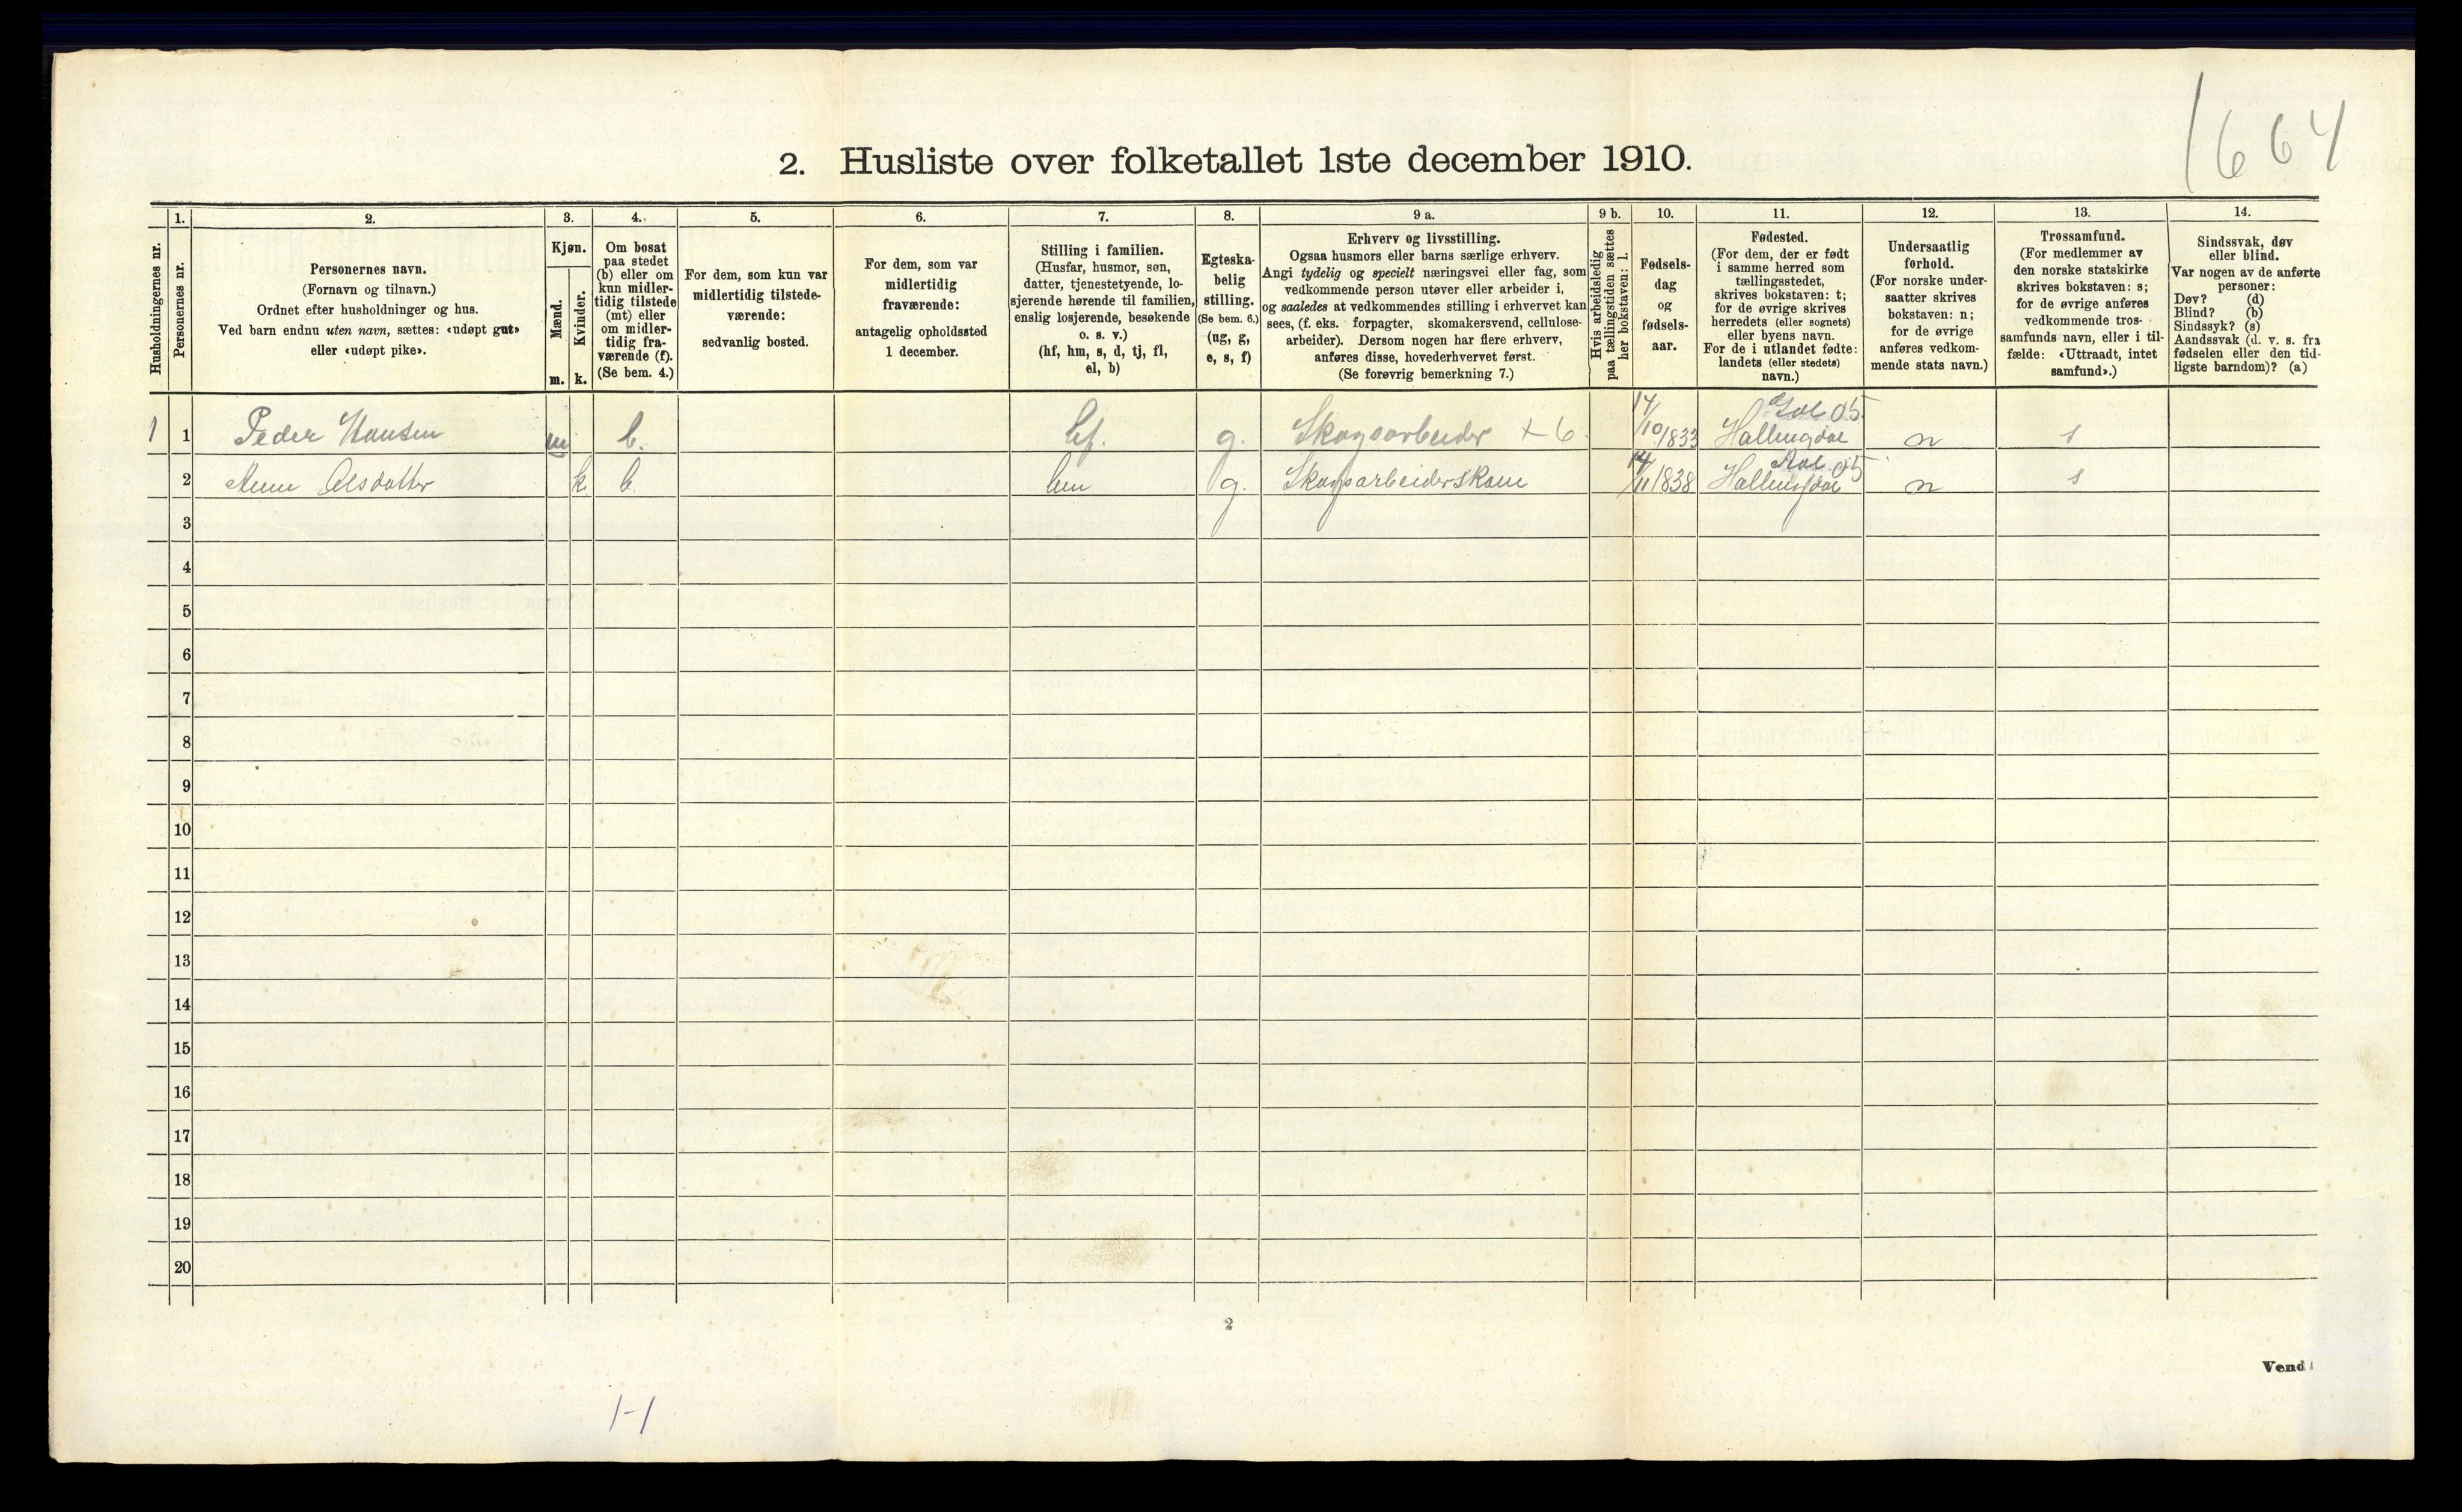 1664
2. Husliste over folketallet 1ste december 1910.
Husholdningernes nr.
1.
Personernes nr.
2.
Personernes navn.
(Fornavn og tilnavn.)
Ordnet efter husholdninger og hus.
Ved barn endnu uten navn, sættes: «udøpt gut»
eller «udøpt pike».
3.
Kjøn.
Mænd.
Kvinder.
m. k.
4.
Om bosat
paa stedet
(b) eller om
kun midler-
tidig tilstede
(mt) eller
om midler-
tidig fra-
værende (f).
(Se bem. 4.)
5.
For dem, som kun var
midlertidig tilstede-
værende:
sedvanlig bosted.
6.
For dem, som var
midlertidig
fraværende:
antagelig opholdssted
1 december.
7.
Stilling i familien.
(Husfar, husmor, søn,
datter, tjenestetyende, lo-
sjerende hørende til familien,
enslig losjerende, besøkende
o. s. v.)
(hf, hm, s, d, tj, fl,
el, b)
8.
Egteska-
belig
stilling.
(Se bem. 6.)
(ug, g,
e, s, f)
9 a.
Erhverv og livsstilling.
Ogsaa husmors eller barns særlige erhverv.
Angi tydelig og specielt næringsvei eller fag, som
vedkommende person utøver eller arbeider i,
og saaledes at vedkommendes stilling i erhvervet kan
sees, (f. eks. forpagter, skomakersvend, cellulose-
arbeider). Dersom nogen har flere erhverv,
anføres disse, hovederhvervet først.
(Se forøvrig bemerkning 7.)
9 b.
Hvis arbeidsledig
paa tællingstiden sættes
her bokstaven: l.
10.
Fødsels-
dag
og
fødsels-
aar.
11.
Fødested.
(For dem, der er født
i samme herred som
tællingsstedet,
skrives bokstaven: t;
for de øvrige skrives
herredets (eller sognets)
eller byens navn.
For de i utlandet fødte:
landets (eller stedets)
navn.)
12.
Undersaatlig
forhold.
(For norske under-
saatter skrives
bokstaven: n;
for de øvrige
anføres vedkom-
mende stats navn.)
13.
Trossamfund.
(For medlemmer av
den norske statskirke
skrives bokstaven: s;
for de øvrige anføres
vedkommende tros-
samfunds navn, eller i til-
fælde: «Uttraadt, intet
samfund».)
14.
Sindssvak, døv
eller blind.
Var nogen av de anførte
personer:
Døv? (d)
Blind? (b)
Sindssyk? (s)
Aandssvak (d. v. s. fra
fødselen eller den tid-
ligste barndom)? (a)
1 1 Peder Hansen m b. hf. g. Skogsarbeider + 6. 14/10/833 Gol 05 Hallingdal n s
2 Anne Olsdatter k b hm g. Skogsarbeiderskone 14/11/838 Aal 05 Hallingdal n s
3
4
5
6
7
8
9
10
11
12
13
14
15
16
17
18
19
20
2
Vend
1-1